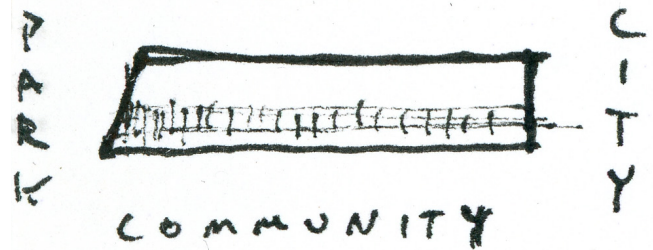 PARK
CITY
COMMUNITY